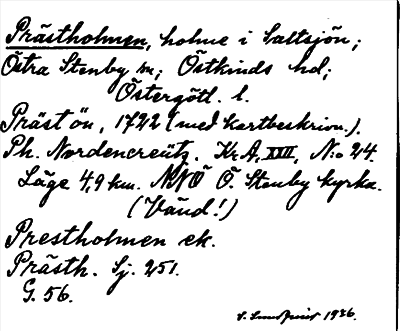 Prästholmen, holme i Saltsjön;
Östra Stenby sn; Östkinds hd;
Östergötl. l.
Präst ön, 1722 (med kartbeskrivn.),
Ph. Nordencreutz. Kr. A, XXIII, N:o 24.
Läge 4,9 km. NNÖ Ö. Stenby kyrka.
(Vänd!)
Prestholmen ek.
Prästh. Sj. 251.
G. 56.
1936.